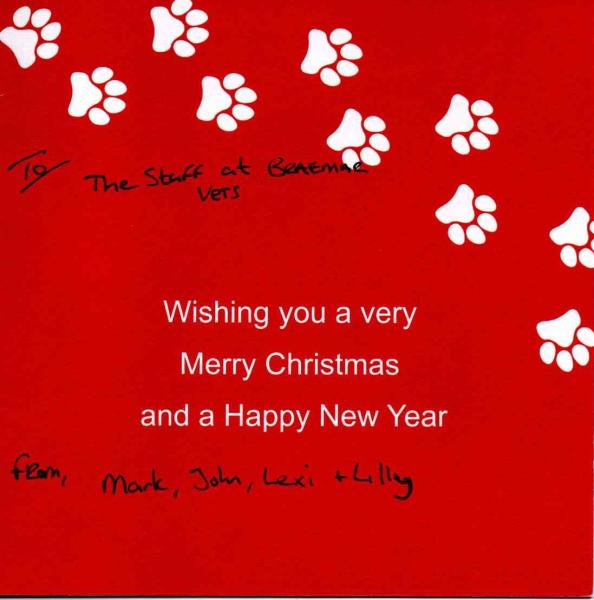 To
The Staff at BRAEMAR
VETS
Wishing you a very
Merry Christmas
and a Happy New Year
From, Mark, John, Lexi + Lilly